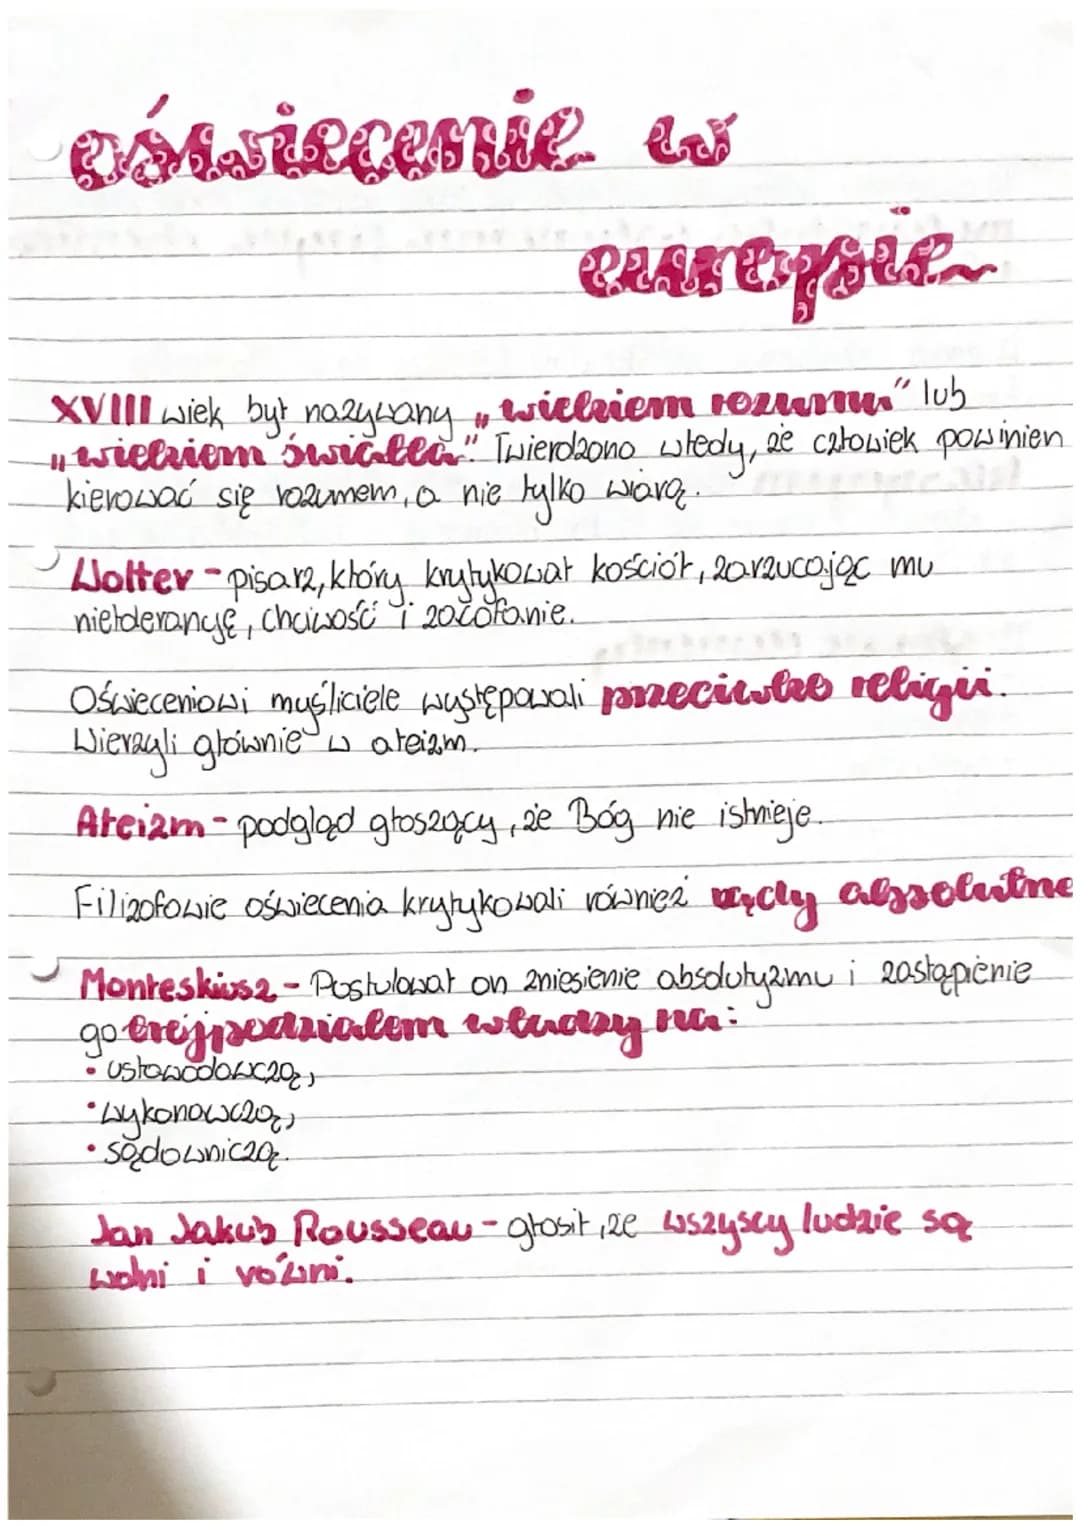 oświecenie w
europie
XVIII wiek był nazywany „wiekiem rozumu" lub
„wiekiem światła". Twierdzono wtedy, że człowiek powinien
kierować się rozumem, a nie tylko wiarą.
Wolter - pisarz, który krytykował kościół, zarzucając mu
nietolerancję, chciwość i zacofanie.
Oświeceniowi myśliciele występowali przeciwko religii.
Wierzyli głównie w ateizm.
Ateizm - podgląd głoszący, że Bóg nie istnieje.
Filizofowie oświecenia krytykowali również rządy absolutne
Monteskiusz - Postulował on zniesienie absolutyzmu i zastąpienie
go trójpodziałem władzy na:
• ustawodawczą,
• wykonawczą,
• sądowniczą.
Jan Jakub Rousseau - głosił, że wszyscy ludzie są
wolni i równi.